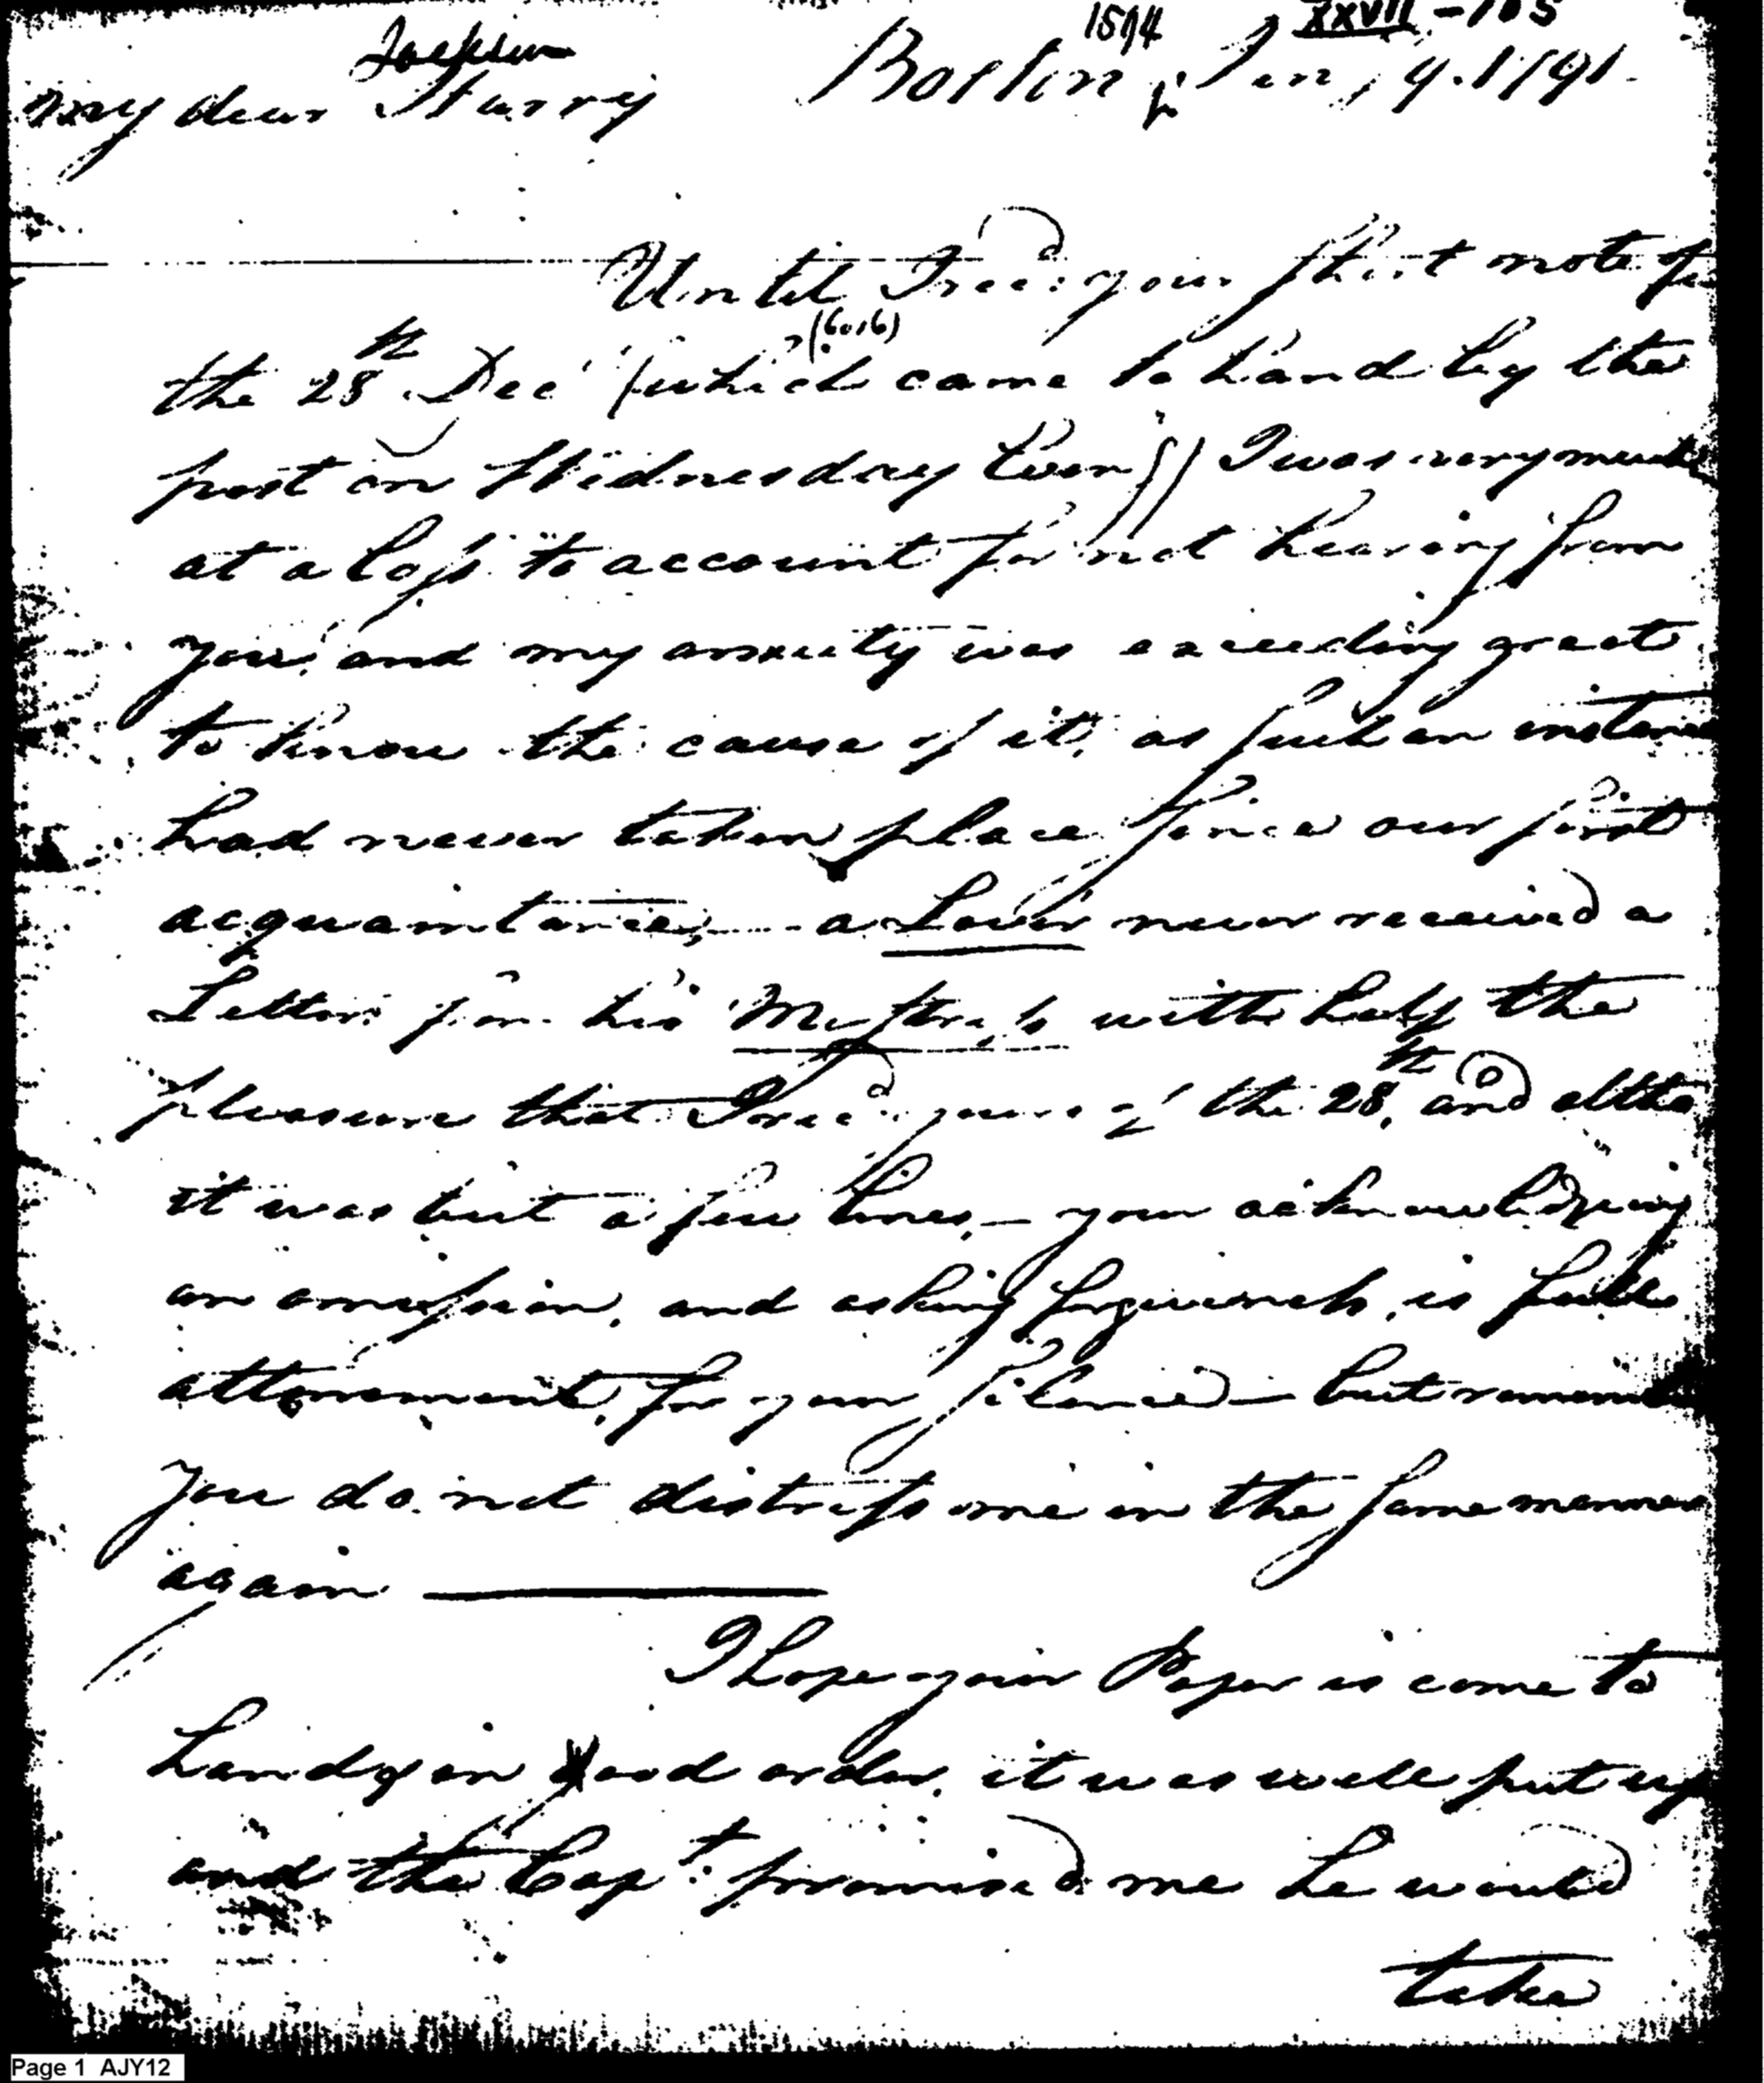 1514 XXVII - 105
Jackson
Boston Jan, 9. 1791.
my dear Harry
Until I recd: your short note of
the 28th Decr (which came to hand by the
post on Wednesday Even)) I was very much
at a loss to account for not hearing from
you, and my anxiety was exceeding great
to know the cause of it, as such an instance
had never taken place since our first
acquaintance, — a Lover never received a
Letter from his Mistress with half the
pleasure that I recd. yours of the 28th, and altho
it was but a few lines, — your acknowledging
an omission, and asking forgiveness, is full
attonement, for your silence — but remember
you do not distress me in the same manner
again
I hope your Paper is come to
hand in good order, it was well put up
and the Capt. promised me he would
take
Page 1 AJY12